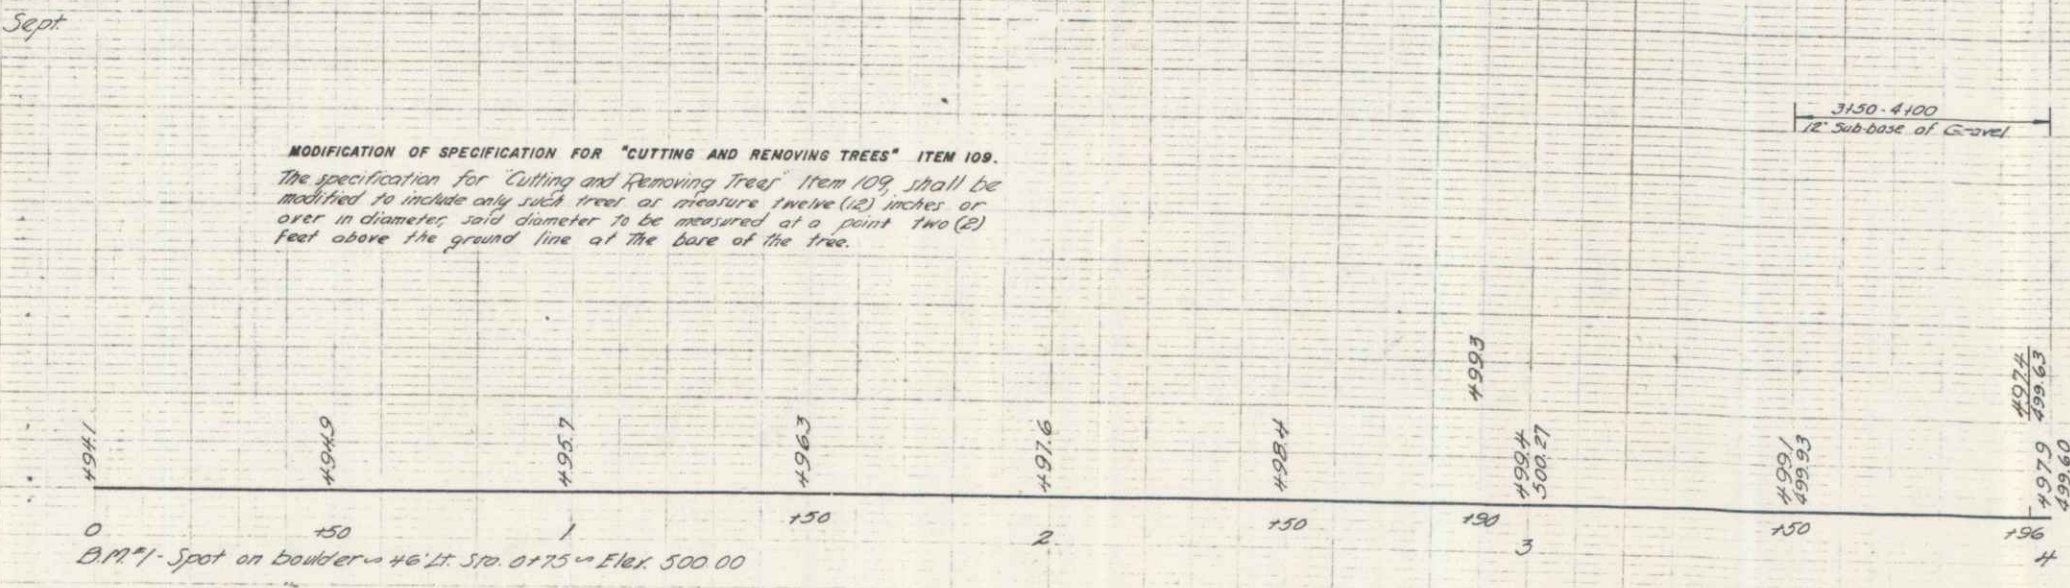 Sept.
3+50 - 4+00
12" Sub-base of Gravel
MODIFICATION OF SPECIFICATION FOR "CUTTING AND REMOVING TREES" ITEM 109.
The specification for "Cutting and Removing Trees" Item 109, shall be
modified to include only such trees as measure twelve (12) inches or
over in diameter, said diameter to be measured at a point two (2)
feet above the ground line at the base of the tree.
494.1
494.9
495.7
496.3
497.6
498.4
499.3
499.4
500.27
499.1
499.93
497.4
499.63
497.9
499.60
0 +50 1 +50 2 +50 +90 3 +50 +96 4
B.M.#1 - Spot on boulder ~ 46' Lt. Sta. 0+75 ~ Elev. 500.00